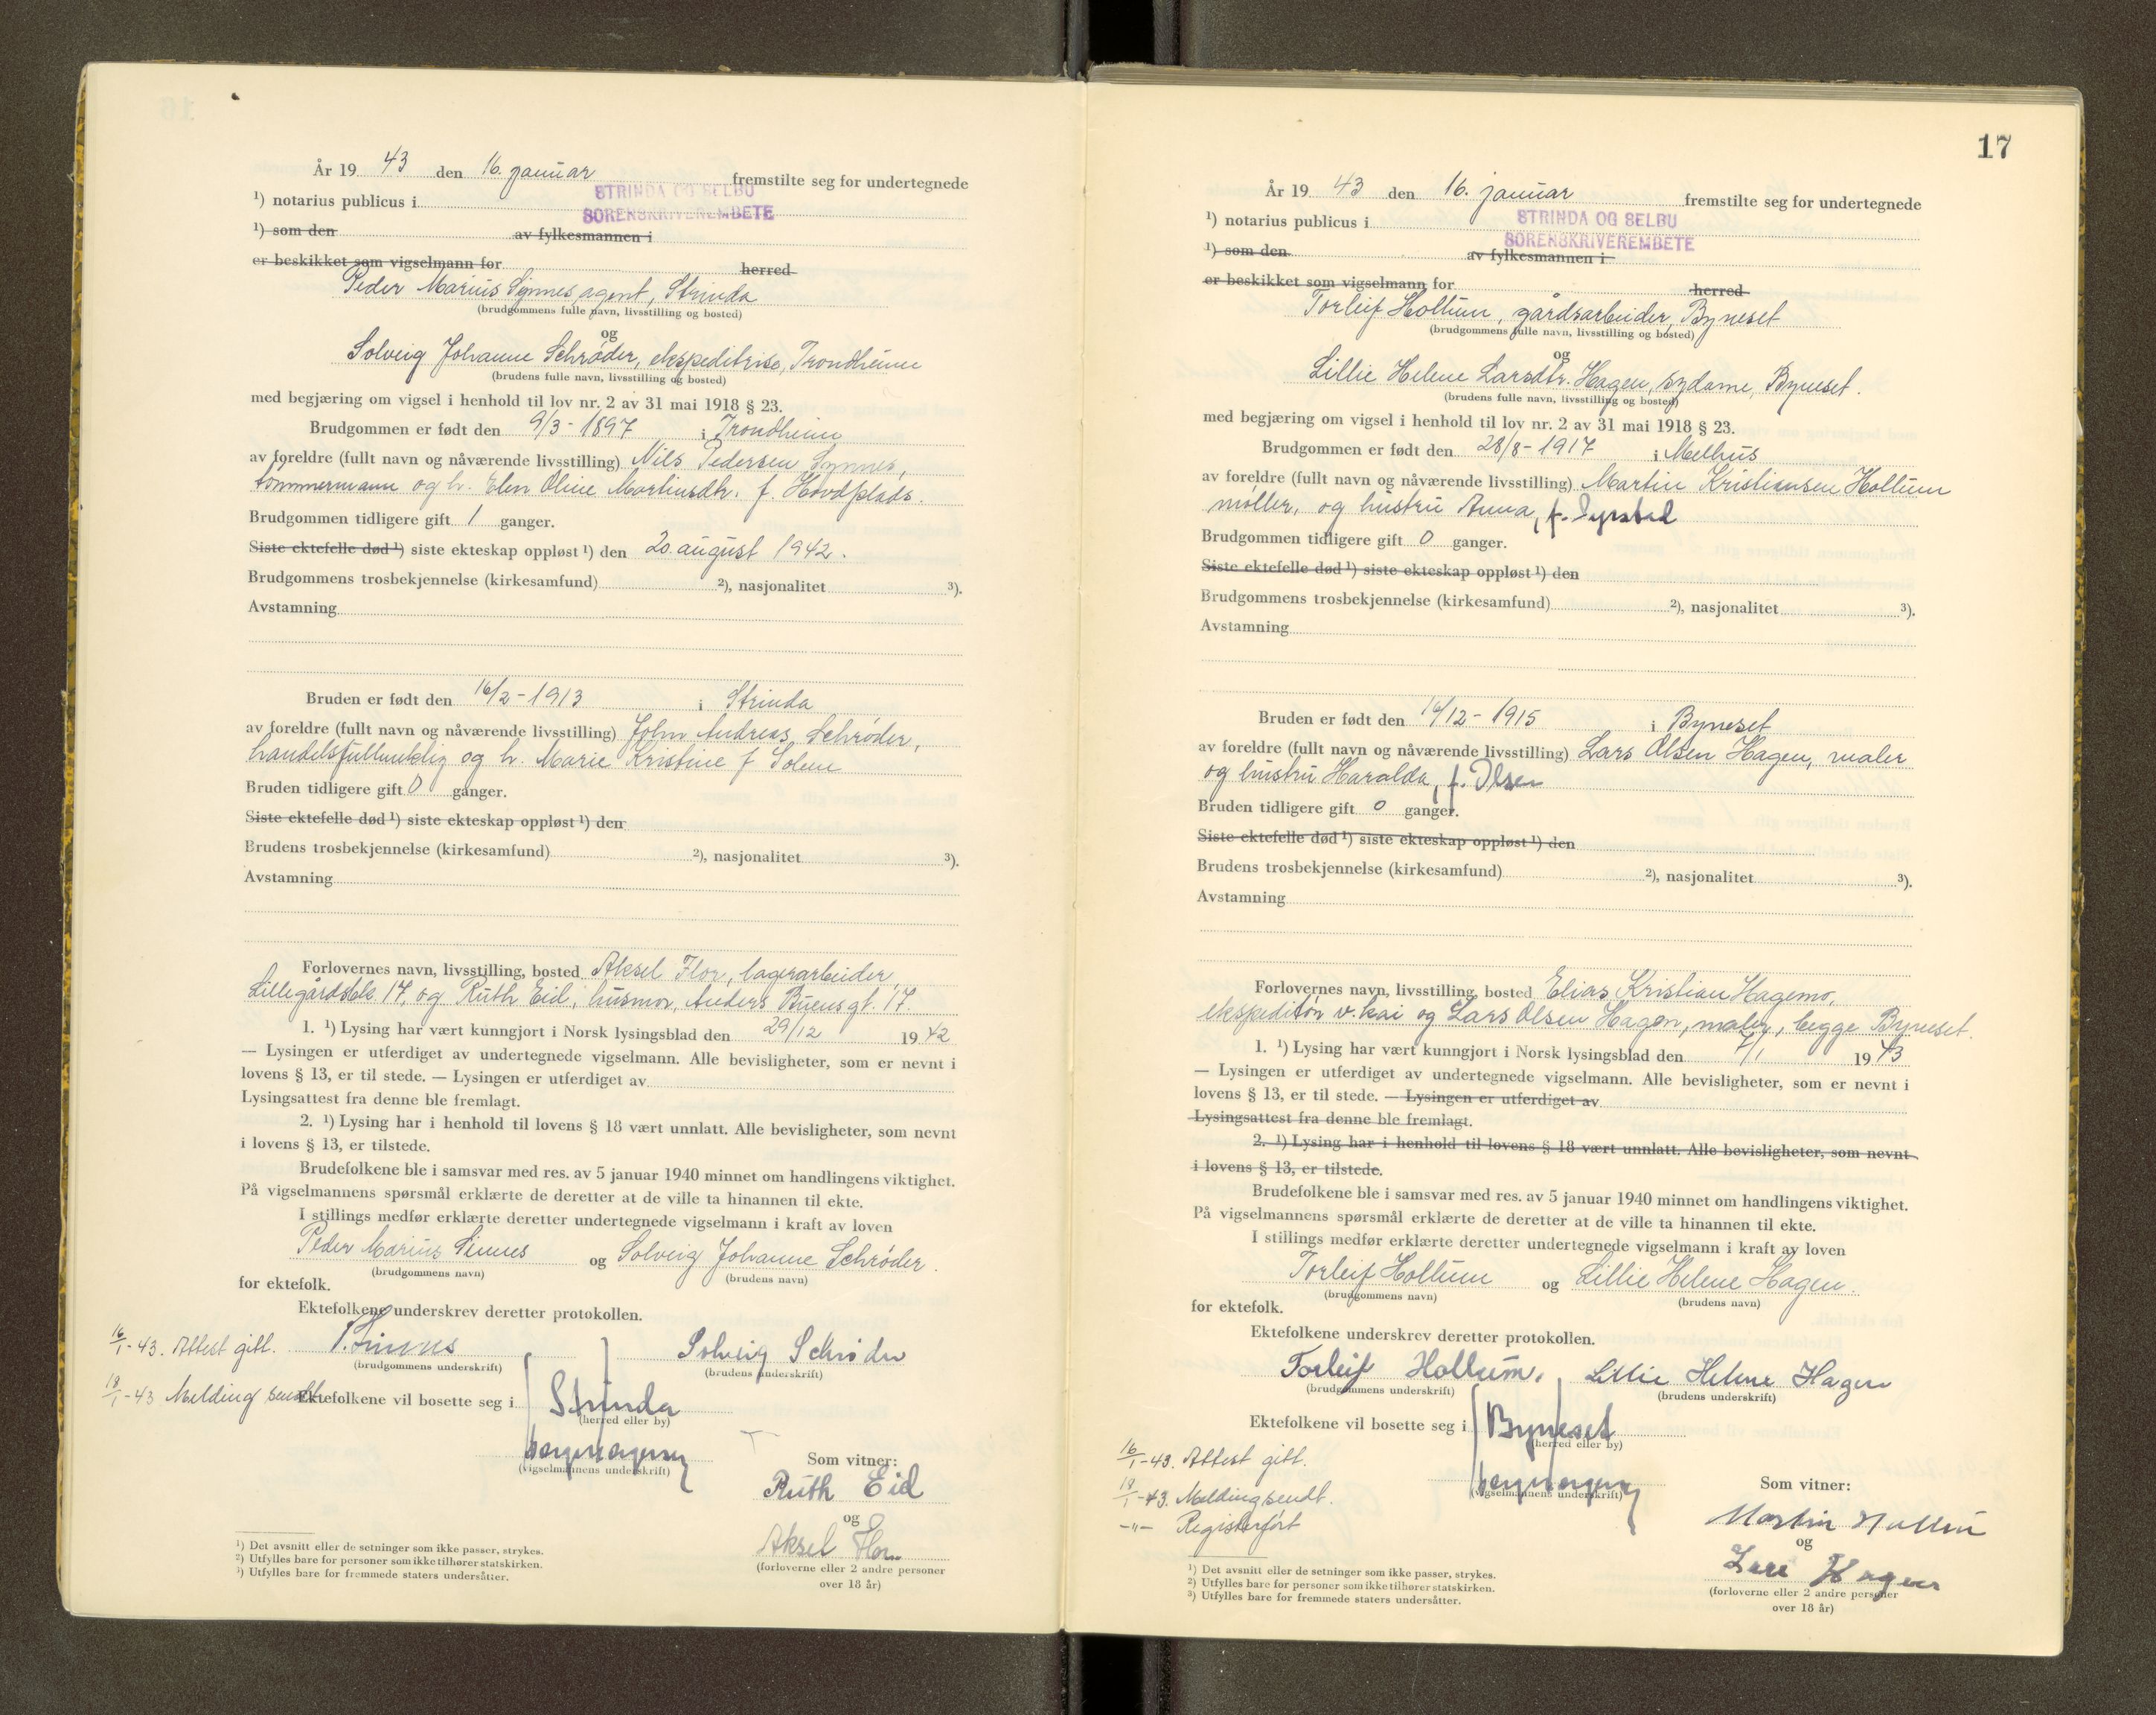 År 19 43 den 16. januar fremstilte seg for undertegnede
STRINDA OG SELBU
¹) notarius publicus i SORENSKRIVEREMBETE
¹) som den av fylkesmannen i
er beskikket som vigselmann for herred
Peder Marius Synnes, agent, Strinda
(brudgommens fulle navn, livsstilling og bosted)
og
Solveig Johanne Schrøder, ekspeditrise, Trondheim
(brudens fulle navn, livsstilling og bosted)
med begjæring om vigsel i henhold til lov nr. 2 av 31 mai 1918 § 23.
Brudgommen er født den 9/3-1897 i Trondheim
av foreldre (fullt navn og nåværende livsstilling) Nils Pedersen Synnes,
tømmermann og h. Elen Oline Martinsdtr. f. Hovdplads.
Brudgommen tidligere gift 1 ganger.
Siste ektefelle død ¹) siste ekteskap oppløst ¹) den 20. august 1942.
Brudgommens trosbekjennelse (kirkesamfund) ²), nasjonalitet ³).
Avstamning
Bruden er født den 16/2-1913 i Strinda
av foreldre (fullt navn og nåværende livsstilling) John Andreas Schrøder,
handelsfullmektig og h. Marie Kristine f Solem
Bruden tidligere gift 0 ganger.
Siste ektefelle død ¹) siste ekteskap oppløst ¹) den
Brudens trosbekjennelse (kirkesamfund) ²), nasjonalitet ³).
Avstamning
Forlovernes navn, livsstilling, bosted Aksel Flor, lagerarbeider,
Lillegårdsbk 17, og Ruth Eid, husmor, Anders Buens gt. 17.
1. ¹) Lysing har vært kunngjort i Norsk lysingsblad den 29/12 19 42
— Lysingen er utferdiget av undertegnede vigselmann. Alle bevisligheter, som er nevnt i
lovens § 13, er til stede. — Lysingen er utferdiget av
Lysingsattest fra denne ble fremlagt.
2. ¹) Lysing har i henhold til lovens § 18 vært unnlatt. Alle bevisligheter, som nevnt
i lovens § 13, er tilstede.
Brudefolkene ble i samsvar med res. av 5 januar 1940 minnet om handlingens viktighet.
På vigselmannens spørsmål erklærte de deretter at de ville ta hinannen til ekte.
I stillings medfør erklærte deretter undertegnede vigselmann i kraft av loven
Peder Marius Sinnes og Solveig Johanne Schrøder.
(brudgommens navn) (brudens navn)
for ektefolk.
Ektefolkene underskrev deretter protokollen.
16/1-43. Attest gitt. P. Sinnes Solveig Schrøder
(brudgommens underskrift) (brudens underskrift)
18/1-43 Melding sendt. Ektefolkene vil bosette seg i Strinda
(herred eller by)
(vigselmannens underskrift)
Som vitner:
Ruth Eid
og
Aksel Flor
(forloverne eller 2 andre personer
over 18 år)
¹) Det avsnitt eller de setninger som ikke passer, strykes.
²) Utfylles bare for personer som ikke tilhører statskirken.
³) Utfylles bare for fremmede staters undersåtter.
17
År 19 43 den 16. januar fremstilte seg for undertegnede
STRINDA OG SELBU
¹) notarius publicus i SORENSKRIVEREMBETE
¹) som den av fylkesmannen i
er beskikket som vigselmann for herred
Torleif Hollum, gårdsarbeider, Byneset
(brudgommens fulle navn, livsstilling og bosted)
og
Lillie Helene Larsdtr. Hagen, sydame, Byneset.
(brudens fulle navn, livsstilling og bosted)
med begjæring om vigsel i henhold til lov nr. 2 av 31 mai 1918 § 23.
Brudgommen er født den 28/8-1917 i Melhus
av foreldre (fullt navn og nåværende livsstilling) Martin Kristiansen Hollum
møller, og hustru Anna, f. Syrstad
Brudgommen tidligere gift 0 ganger.
Siste ektefelle død ¹) siste ekteskap oppløst ¹) den
Brudgommens trosbekjennelse (kirkesamfund) ²), nasjonalitet ³).
Avstamning
Bruden er født den 16/12-1915 i Byneset
av foreldre (fullt navn og nåværende livsstilling) Lars Olsen Hagen, maler
og hustru Haralda, f. Olsen
Bruden tidligere gift 0 ganger.
Siste ektefelle død ¹) siste ekteskap oppløst ¹) den
Brudens trosbekjennelse (kirkesamfund) ²), nasjonalitet ³).
Avstamning
Forlovernes navn, livsstilling, bosted Elias Kristian Hagemo,
ekspeditør v. kai og Lars Olsen Hagen, maler, begge Byneset.
1. ¹) Lysing har vært kunngjort i Norsk lysingsblad den 7/1 19 43
— Lysingen er utferdiget av undertegnede vigselmann. Alle bevisligheter, som er nevnt i
lovens § 13, er til stede. — Lysingen er utferdiget av
Lysingsattest fra denne ble fremlagt.
2. ¹) Lysing har i henhold til lovens § 18 vært unnlatt. Alle bevisligheter, som nevnt
i lovens § 13, er tilstede.
Brudefolkene ble i samsvar med res. av 5 januar 1940 minnet om handlingens viktighet.
På vigselmannens spørsmål erklærte de deretter at de ville ta hinannen til ekte.
I stillings medfør erklærte deretter undertegnede vigselmann i kraft av loven
Torleif Hollum og Lillie Helene Hagen.
(brudgommens navn) (brudens navn)
for ektefolk.
Ektefolkene underskrev deretter protokollen.
Torleif Hollum. Lillie Helene Hagen
(brudgommens underskrift) (brudens underskrift)
Ektefolkene vil bosette seg i Byneset
(herred eller by)
16/1-43. Attest gitt.
18/1-43. Melding sendt.
-"- Registerført
(vigselmannens underskrift)
Som vitner:
Martin Hollum
og
Lars Hagen
(forloverne eller 2 andre personer
over 18 år)
¹) Det avsnitt eller de setninger som ikke passer, strykes.
²) Utfylles bare for personer som ikke tilhører statskirken.
³) Utfylles bare for fremmede staters undersåtter.